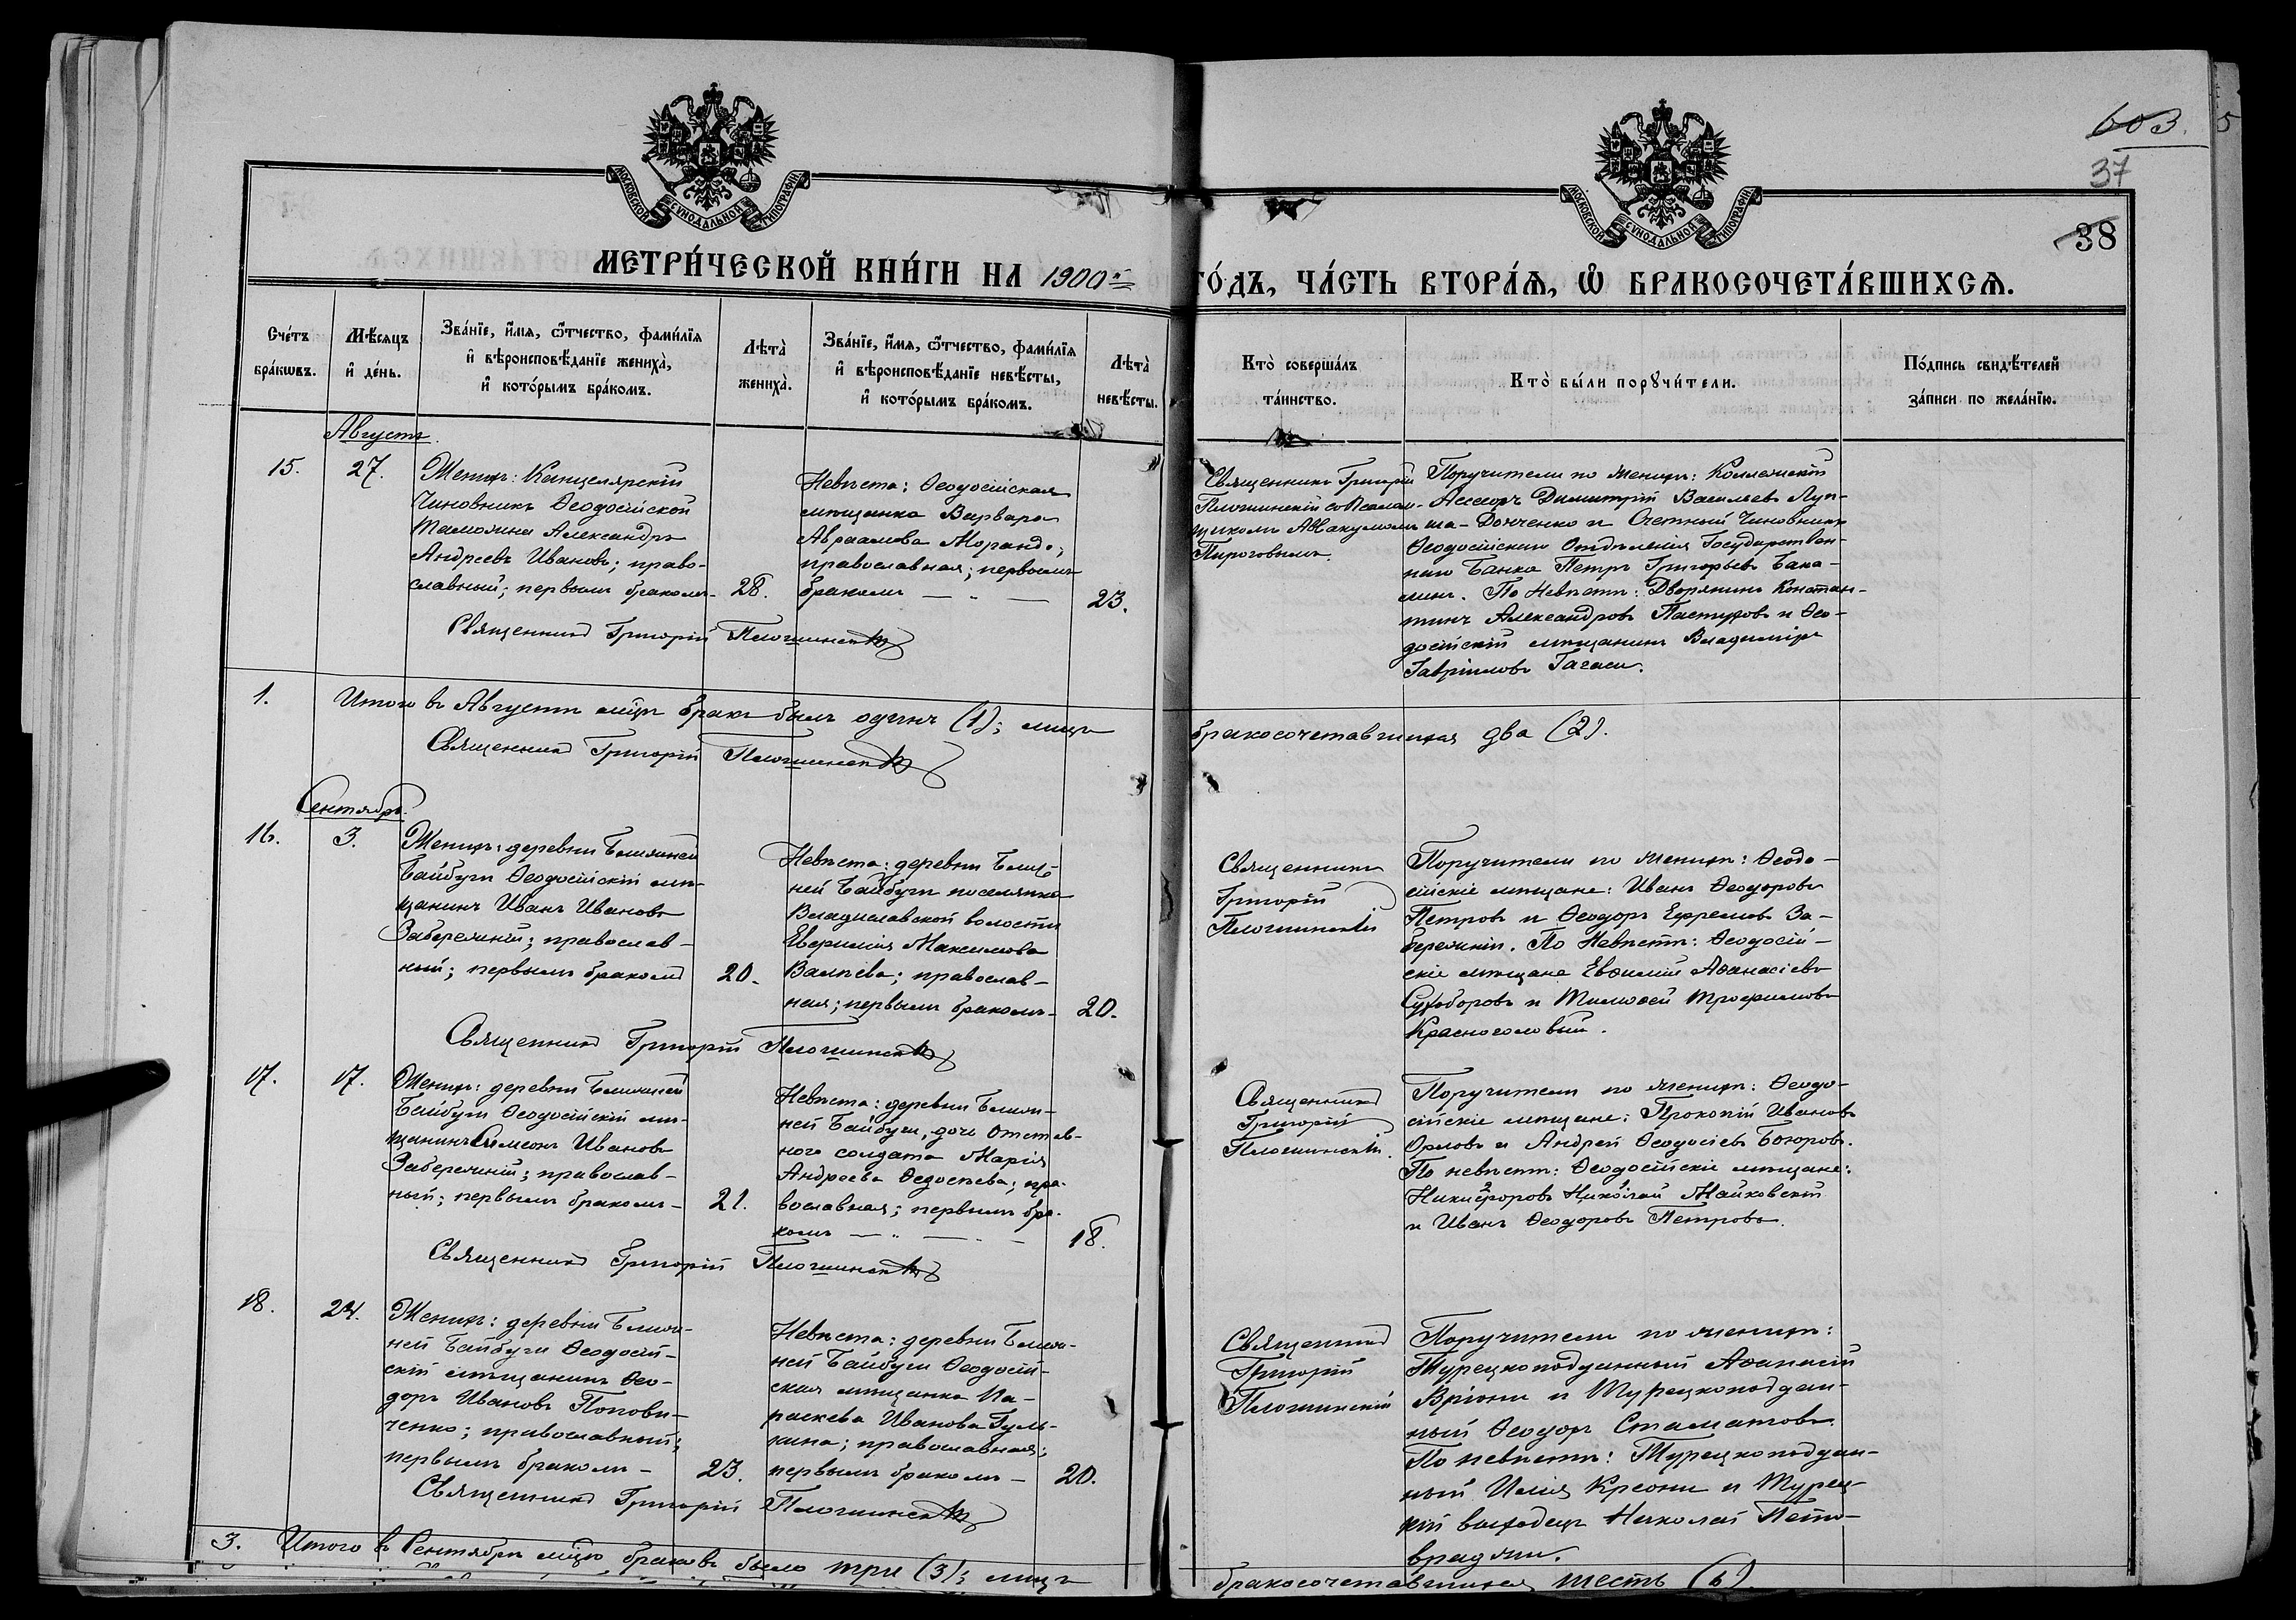 603.
37
38
МОСКОВСКОЙ СѴНОДАЛЬНОЙ ТИПОГРАФІИ
МОСКОВСКОЙ СѴНОДАЛЬНОЙ ТИПОГРАФІИ
МЕТРИ́ЧЕСКОЙ КНИ́ГИ НА 1900й
ГО́ДЪ, ЧА́СТЬ ВТОРА́Я, Ѡ БРАКОСОЧЕТА́ВШИХСЯ.
Сче́тъ
бра́кѡвъ.
Мѣ́сяцъ
и де́нь.
Зва́нїе, и́мя, ѻ҆́тчество, фами́лїя
и вѣроисповѣ́данїе жениха̀,
и кото́рымъ бра́комъ.
Лѣта̀
жениха̀.
Зва́нїе, и́мя, ѻ҆́тчество, фами́лїя
и вѣроисповѣ́данїе невѣ́сты,
и кото́рымъ бра́комъ.
Лѣта̀
невѣ́сты.
Кто̀ соверша́лъ
та́инство.
Кто̀ бы́ли порꙋчи́тели.
По́дпись свидѣ́телей
за́писи по жела́нїю.
Августъ.
15.
27.
Женихъ: Канцелярскій
Чиновникъ Ѳеодосійской
Таможни Александръ
Андреевъ Ивановъ; право-
славный; первымъ бракомъ-
28.
Невѣста: Ѳеодосійская
мѣщанка Варвара
Авраамова Моранд;
православная; первымъ
бракомъ — „ —
23.
Священникъ Григорій Плогшинск
Священникъ Григорій
Псалом-
щикомъ Аввакумомъ
Пироговымъ.
Поручители по женихѣ: Коллежскій
Ассесоръ Димитрій Васильевъ Луп-
ша-Довченко и Счетный Чиновникъ
Ѳеодосійскаго Отдѣленія Государствен-
наго Банка Петръ Григорьевъ Бака-
лин. По Невѣстѣ: Дворянинъ Констан-
тинъ Александровъ Пастуховъ и Ѳео-
досійскій мѣщанинъ Владиміръ
Гавріиловъ Гагаси.
1.
Итого въ Августѣ мѣсцѣ бракъ былъ одинъ (1); лицъ
бракосочетавшихся два (2).
Священникъ Григорій Плогшинск
Сентябрь.
16.
3.
Женихъ: деревни Ближней
Байбуги Ѳеодосійскій мѣ-
щанинъ Иванъ Ивановъ
Забережній; православ-
ный; первымъ бракомъ
20.
Невѣста: деревни Ближ-
ней Байбуги поселянка
Владиславской волости
Евфимія Максимова
Валѣева; православ-
ная; первымъ бракомъ-
20.
Священникъ Григорій Плогшинск
Священникъ
Григорій
Плогшинскій
Поручители по женихѣ: Ѳеодо-
сійскіе мѣщане: Иванъ Ѳеодоровъ
Петровъ и Ѳеодоръ Ефремовъ За-
бережній. По Невѣстѣ: Ѳеодосій-
скіе мѣщане Евѳимій Аѳанасіевъ
Сухоборовъ и Тимоѳей Трофимовъ
Красноголовый.
17.
17.
Женихъ: деревни Ближней
Байбуги Ѳеодосійскій мѣ-
щанинъ Симеонъ Ивановъ
Забережній; православ-
ный; первымъ бракомъ-
21.
Невѣста: деревни Ближ-
ней Байбуги, дочь отстав-
ного солдата Марія
Андреева Ѳедосѣева; пра-
вославная; первымъ бра-
комъ — „ —
18.
Священникъ Григорій Плогшинск
Священникъ
Григорій
Плогшинскій.
Поручители по женихѣ: Ѳеодо-
сійскіе мѣщане: Прокопій Ивановъ
Орловъ и Андрей Ѳеодосіевъ Бокоровъ.
По невѣстѣ: Ѳеодосійскіе мѣщане:
Никифоровъ Николай Майковскій
и Иванъ Ѳеодоровъ Петровъ.
18.
24.
Женихъ: деревни Ближ-
ней Байбуги Ѳеодосій-
скій мѣщанинъ Ѳео-
доръ Ивановъ Попови-
ченко; православный;
первымъ бракомъ-
23.
Невѣста: деревни Ближ-
ней Байбуги Ѳеодосій-
ская мѣщанка Па-
раскева Иванова Гуль-
кина; православная;
первымъ бракомъ-
20.
Священникъ Григорій Плогшинск
Священникъ
Григорій
Плогшинскій
Поручители по женихѣ:
Турецкоподданный Аѳанасій
Вріони и Турецкоподдан-
ный Ѳеодоръ Стаматовъ.
По невѣстѣ: Турецкоподдан-
ный Илія Креони и Турец-
кій выходецъ Николай Пети-
вради.
3.
Итого въ Сентябрѣ мѣсцѣ браковъ было три (3); лицъ
бракосочетавшихся шесть (6).